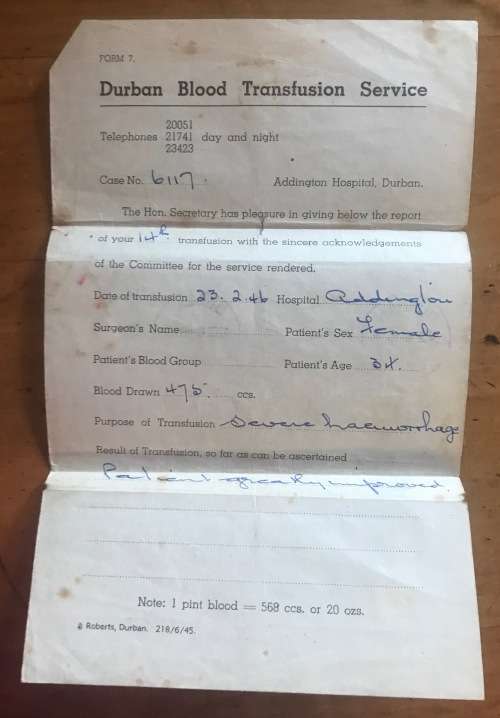 FORM 7.
Durban Blood Transfusion Service
20051
Telephones 21741 day and night
23423
Case No. 6117. Addington Hospital, Durban.
The Hon. Secretary has pleasure in giving below the report
of your 14th transfusion with the sincere acknowledgements
of the Committee for the service rendered.
Date of transfusion 23.2.46 Hospital Addington
Surgeon's Name Patient's Sex Female
Patient's Blood Group Patient's Age
Blood Drawn 475. ccs.
Purpose of Transfusion Severe haemorrhage
Result of Transfusion, so far as can be ascertained
Patient greatly improved.
Note: 1 pint blood = 568 ccs. or 20 ozs.
Roberts, Durban. 218/6/45.